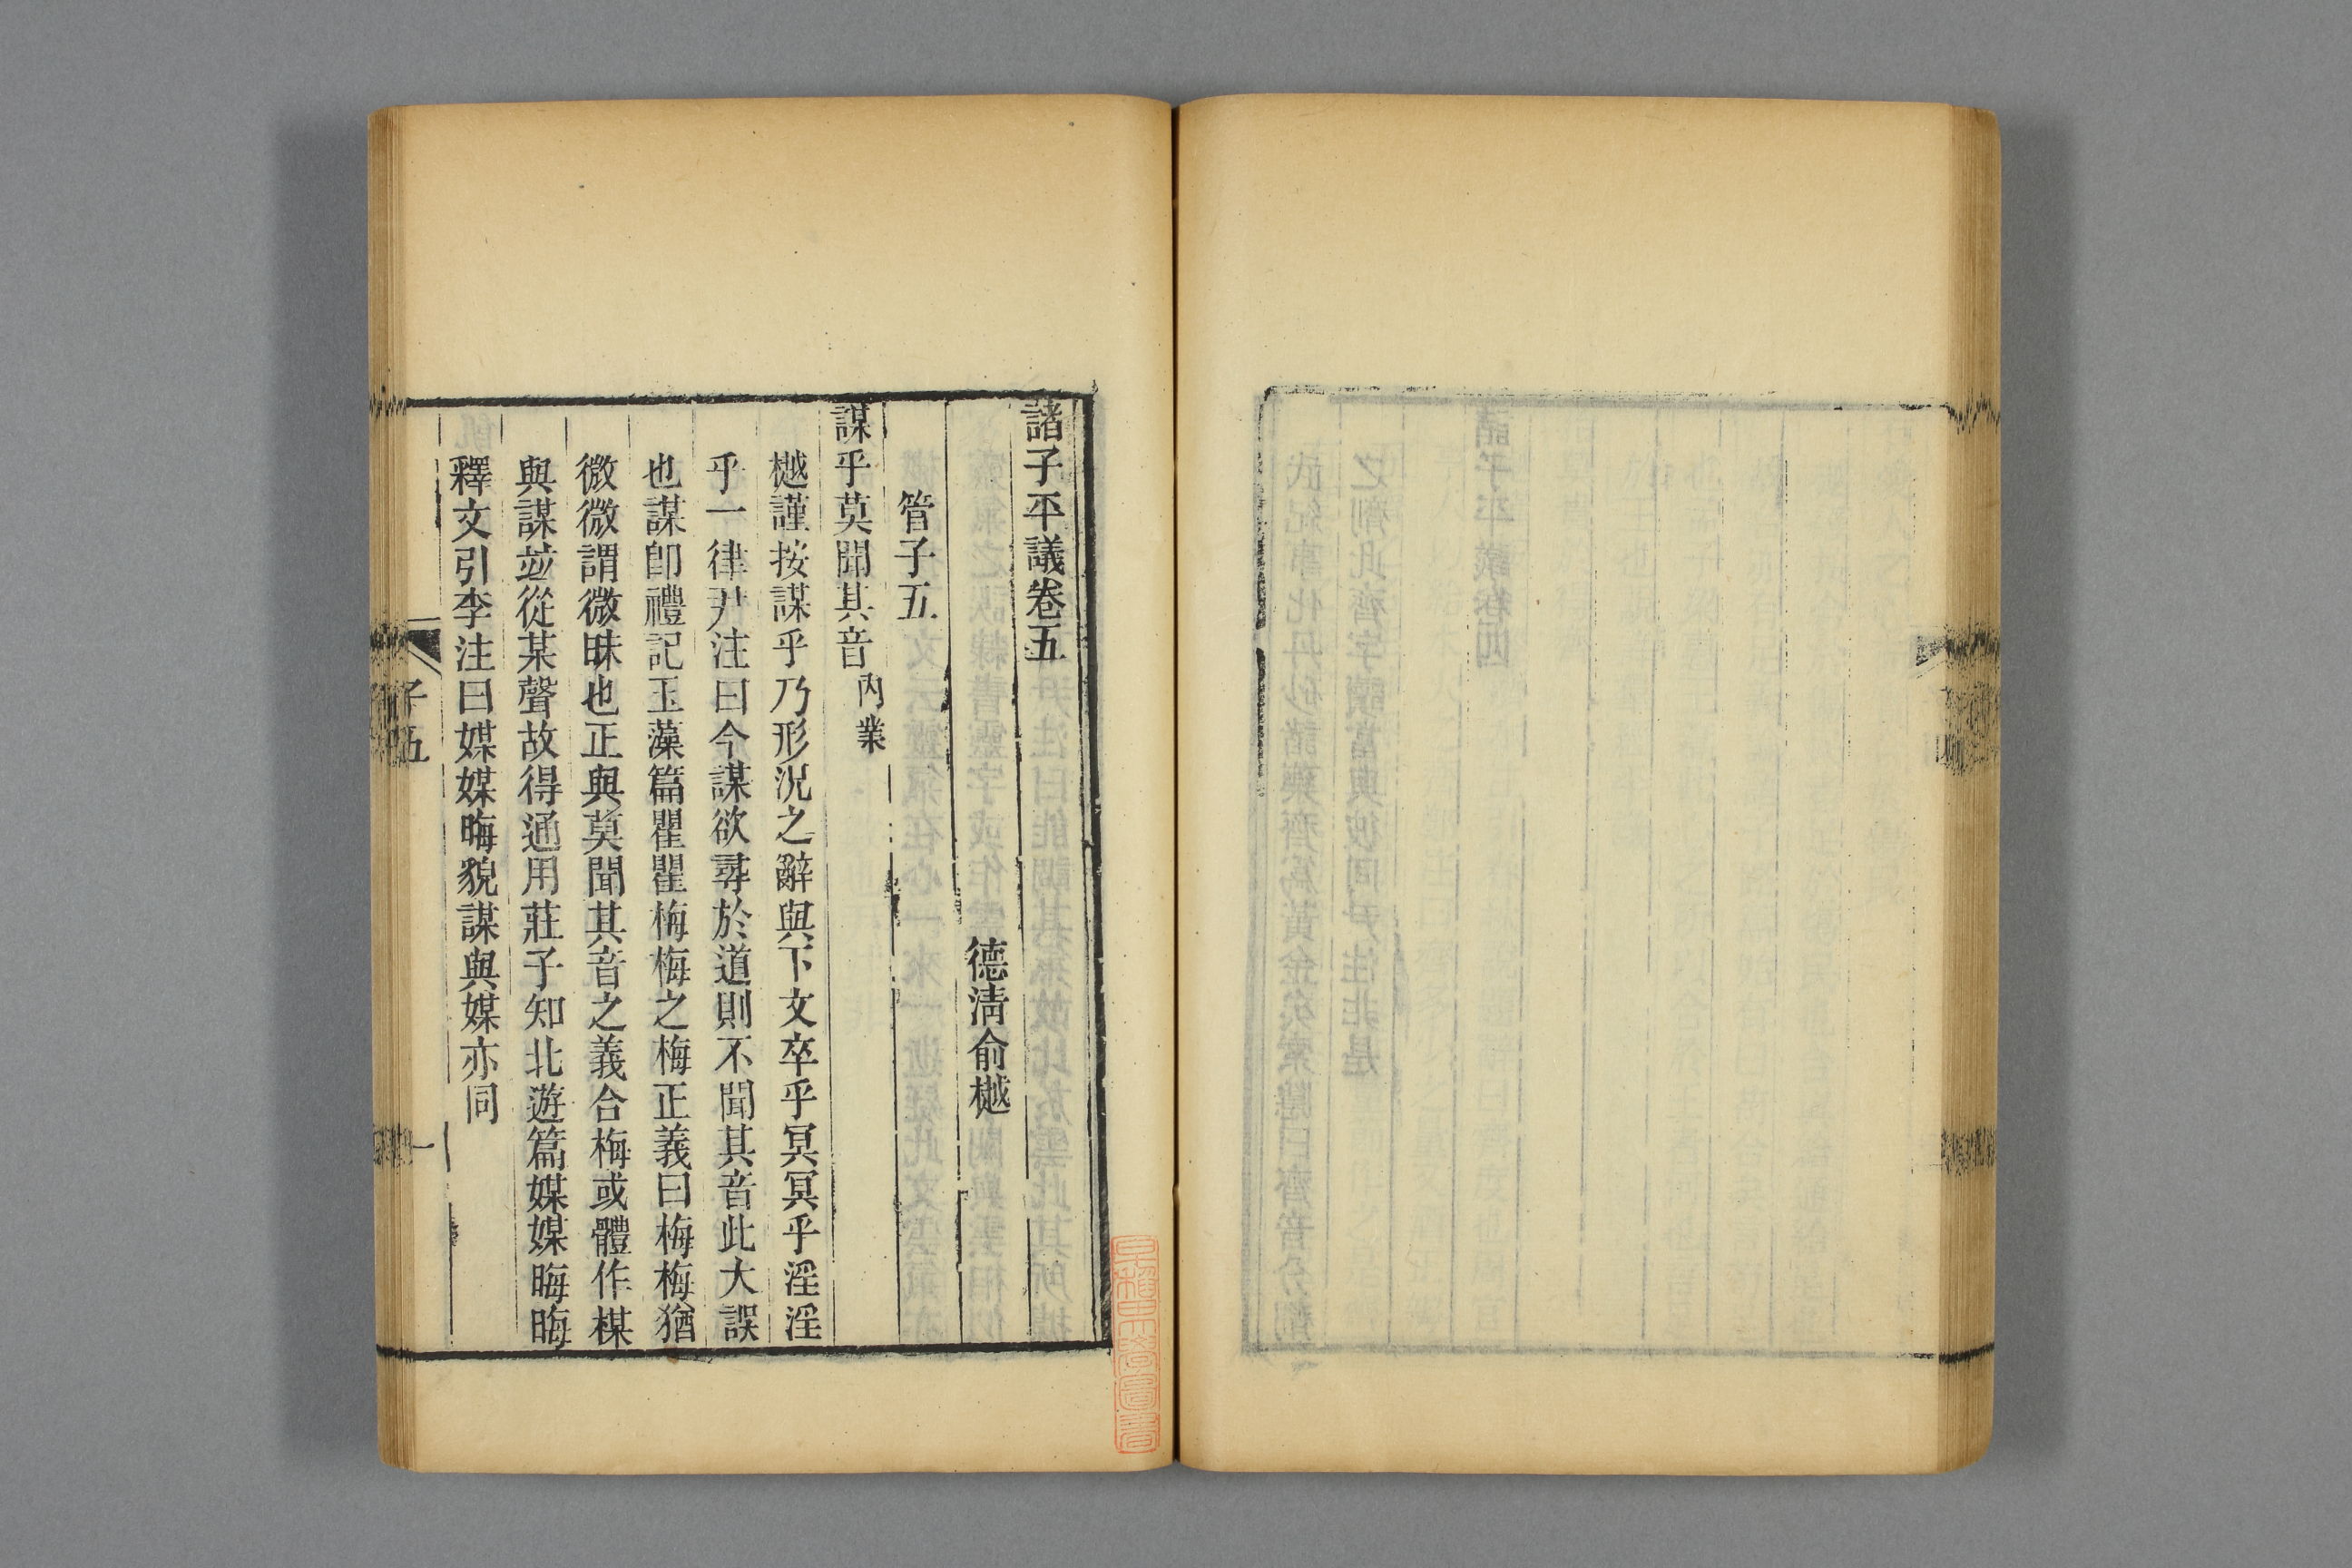 諸子平議卷五
德淸俞樾
管子五
謀乎莫聞其音內業
樾謹按謀乎乃形況之辭與下文卒乎冥冥乎淫淫
乎一律尹注曰今謀欲尋於道則不聞其音此大誤
也謀卽禮記玉藻篇瞿瞿梅梅之梅正義曰梅梅猶
微微謂微昧也正與莫聞其音之義合梅或體作楳
與謀並從某聲故得通用莊子知北遊篇媒媒晦晦
釋文引李注曰媒媒晦貌謀與媒亦同
子五
一